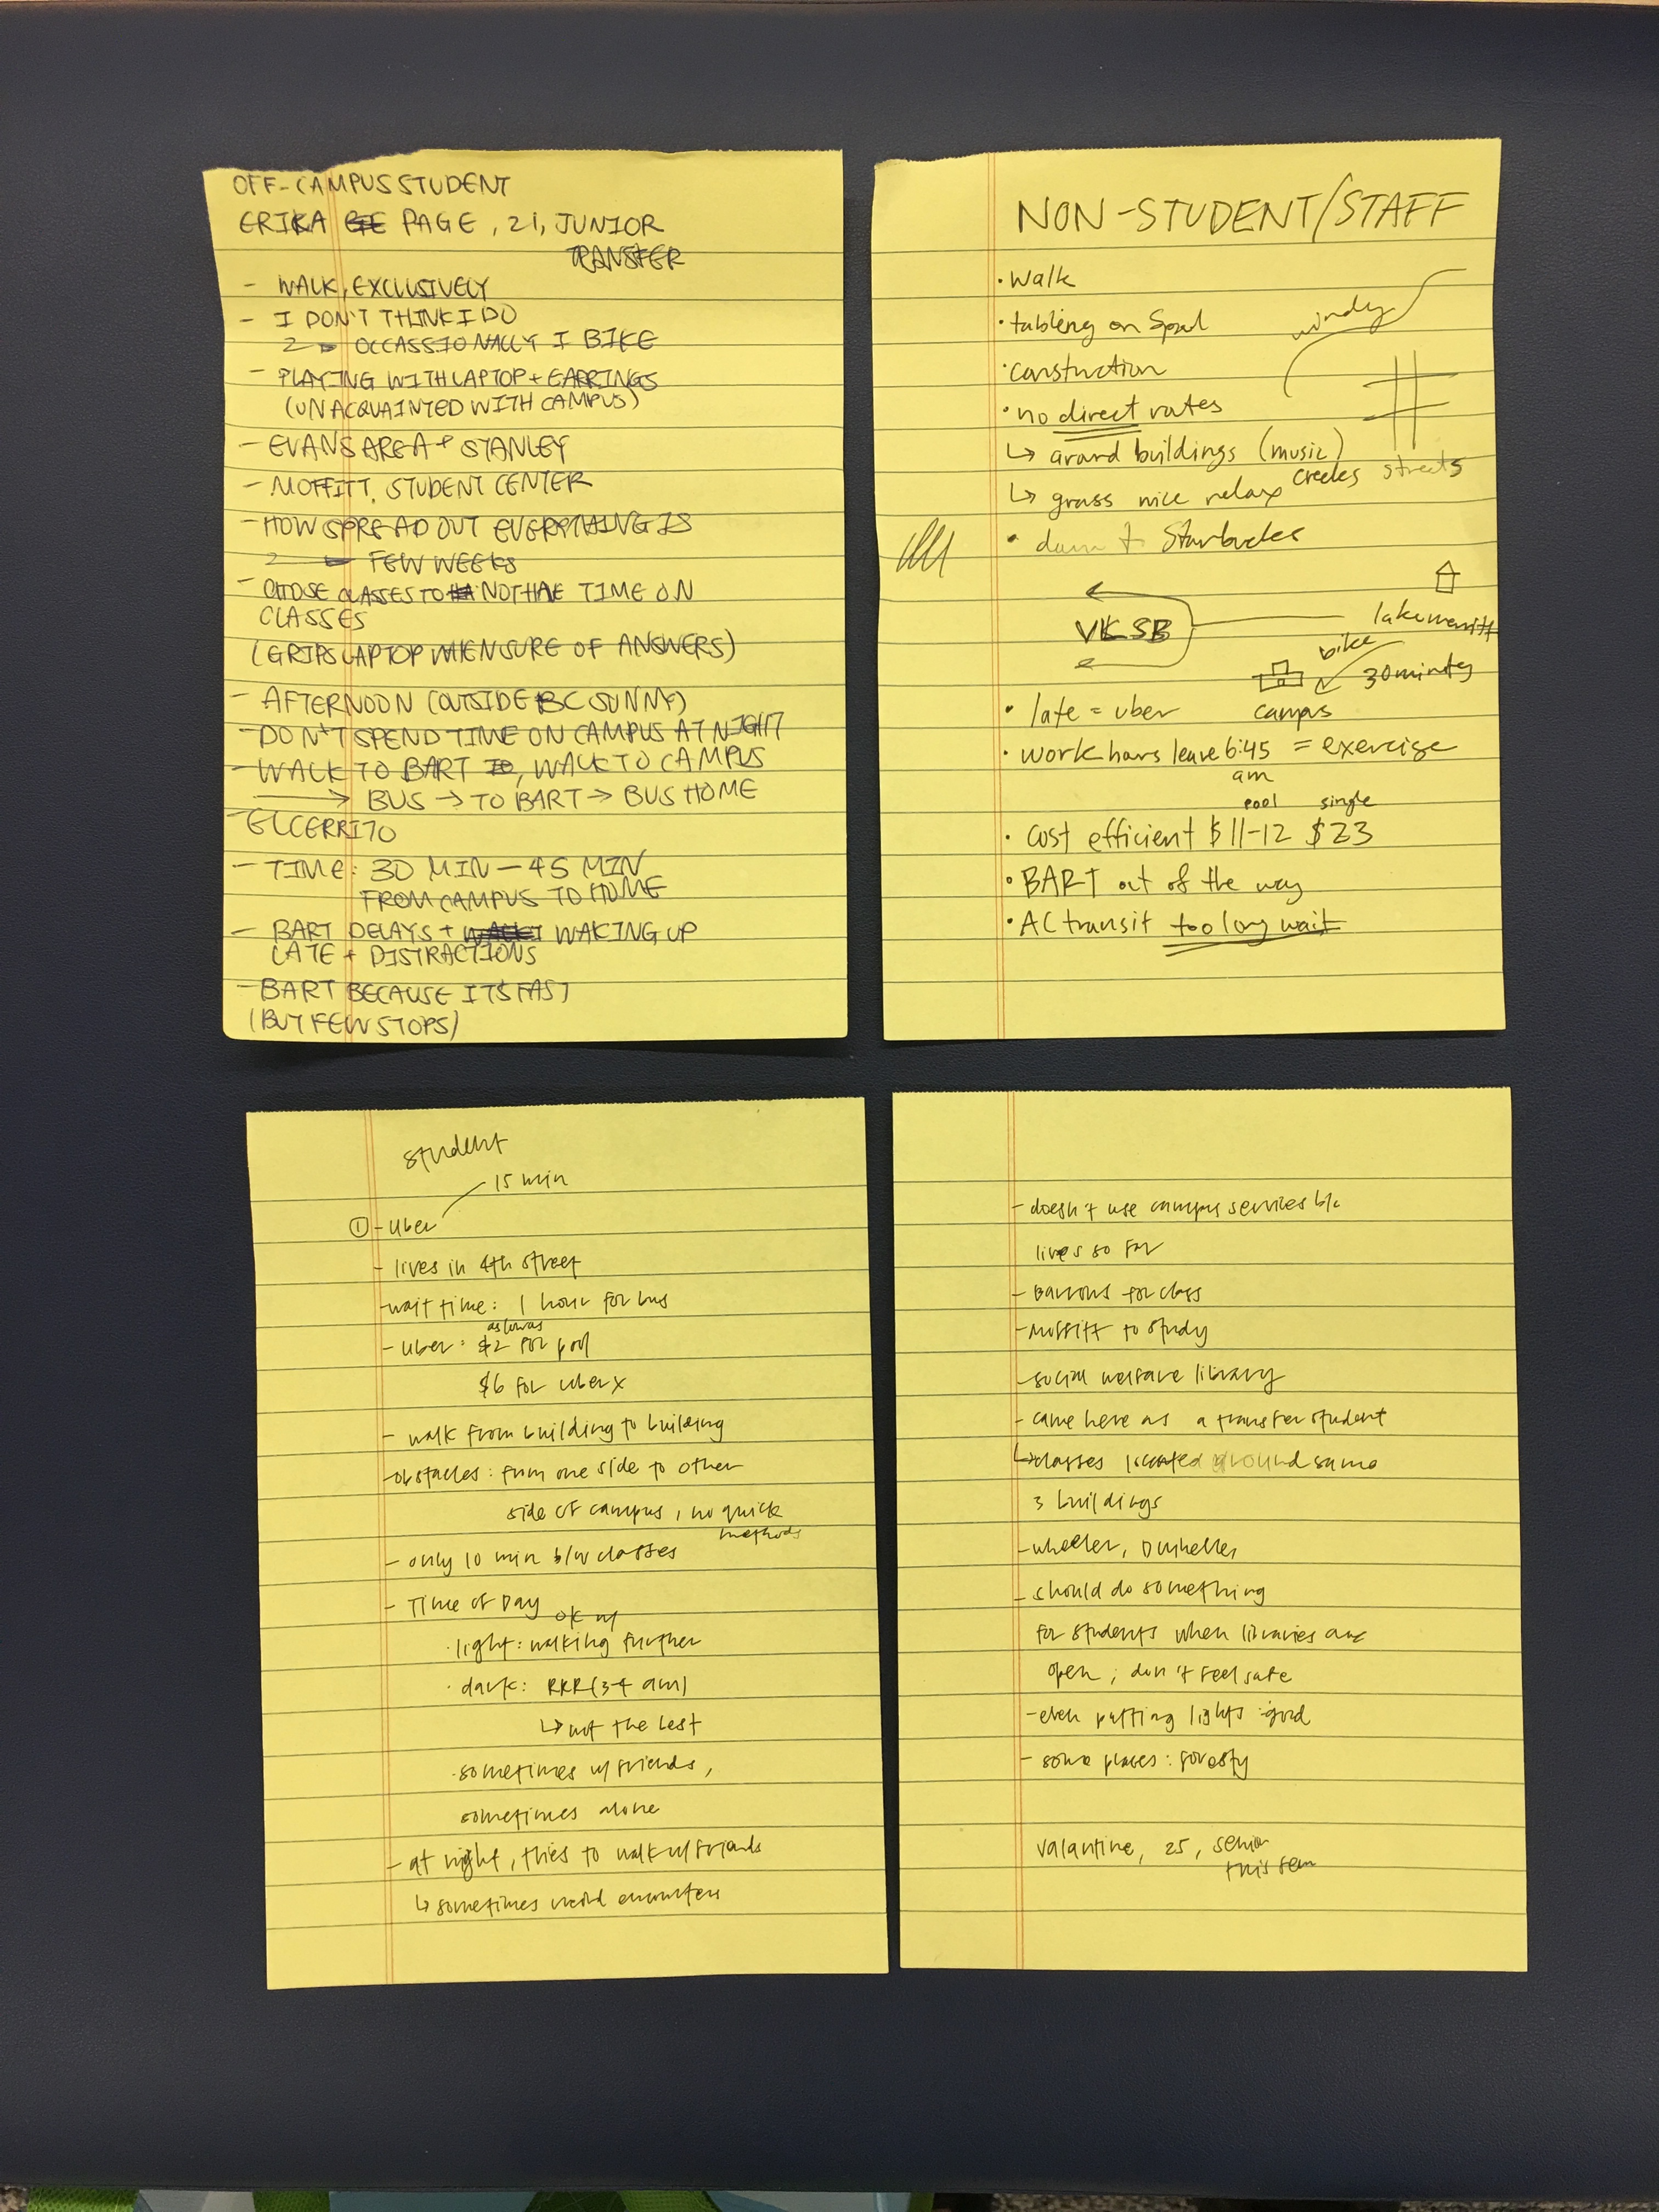 OFF-CAMPUS STUDENT
ERIKA PAGE, 21, JUNIOR
TRANSFER
- WALK, EXCLUSIVELY
- I DON'T THINK I DO
OCCASSIONALLY I BIKE
- PLAYING WITH LAPTOP + EARRINGS
(UNACQUAINTED WITH CAMPUS)
- EVANS AREA + STANLEY
- MOFFITT, STUDENT CENTER
- HOW SPREAD OUT EVERYTHING IS
FEW WEEKS
- CHOOSE CLASSES TO NOT HAVE TIME ON
CLASSES
(GRIPS LAPTOP WHEN SURE OF ANSWERS)
- AFTERNOON (OUTSIDE BC SUNNY)
- DON'T SPEND TIME ON CAMPUS AT NIGHT
- WALK TO BART, WALK TO CAMPUS
→ BUS → TO BART → BUS HOME
- ELCERRITO
- TIME: 30 MIN - 45 MIN
FROM CAMPUS TO HOME
- BART DELAYS + WAKING UP
LATE + DISTRACTIONS
- BART BECAUSE ITS FAST
(BUT FEW STOPS)
NON-STUDENT/STAFF
• walk
• tabling on Sproul
windy
• construction
• no direct routes
↳ around buildings (music)
creeks streets
↳ grass nice relax
• down to Starbucks
VLSB
lake merritt
bike
30 minutes
campus
• late = uber
• work hours leave 6:45 = exercise
am
pool single
• cost efficient $11-12 $23
• BART out of the way
• AC transit too long wait
student
15 min
① - Uber
- lives in 4th street
- wait time: 1 hour for bus
as low as
- Uber: $2 for pool
$6 for uber x
- walk from building to building
- obstacles: from one side to other
side of campus, no quick
methods
- only 10 min b/w classes
- Time of Day
ok w/
• light: walking further
• dark: RRR (3-4 am)
↳ not the best
• sometimes w/ friends,
sometimes alone
- at night, tries to walk w/ friends
↳ sometimes weird encounters
- doesn't use campus services b/c
lives so far
- Barrows for class
- Moffitt to study
- social welfare library
- came here as a transfer student
↳ classes located around same
3 buildings
- wheeler, Dwinelle
- should do something
for students when libraries are
open; don't feel safe
- even putting lights : good
- some places: foresty
Valantine, 25, senior
this sem